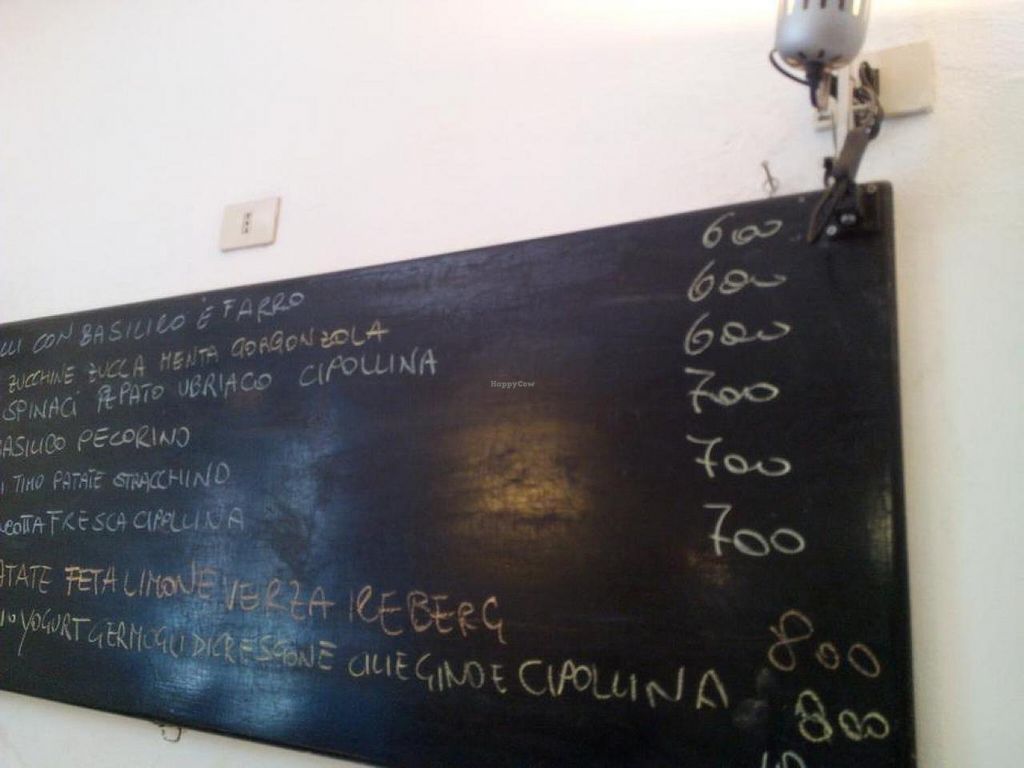 CON BASILICO E FARRO 600
ZUCCHINE ZUCCA MENTA GORGONZOLA 600
SPINACI PEPATO UBRIACO CIPOLLINA 600
BASILICO PECORINO 700
TIMO PATATE STRACCHINO 700
FRESCA CIPOLLINA 700
FETA LIMONE VERZA ICEBERG 800
YOGURT GERMOGLI DI CRESCIONE CILIEGINO E CIPOLLINA 800
HappyCow